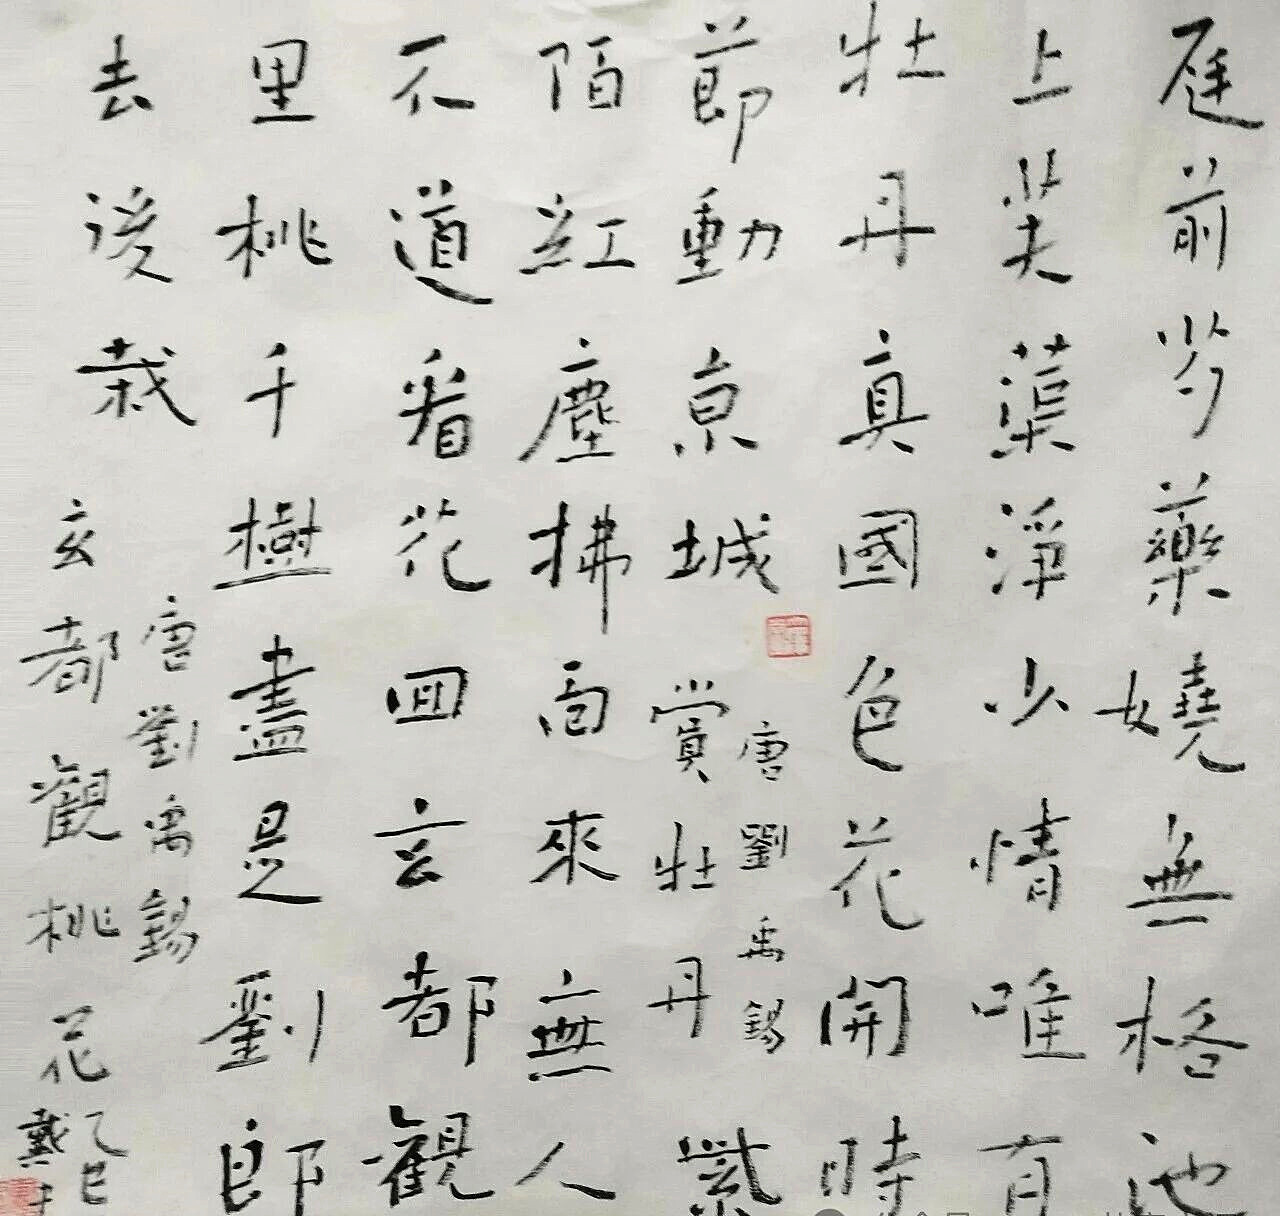 庭前芍藥嬈無格池
上芙蕖淨少情唯有
牡丹真國色花開時
節動京城
唐劉禹錫
賞牡丹
紫
陌紅塵拂面來無人
不道看花回玄都觀
里桃千樹盡是劉郎
去後栽
唐劉禹錫
玄都觀桃花
乙巳
戴